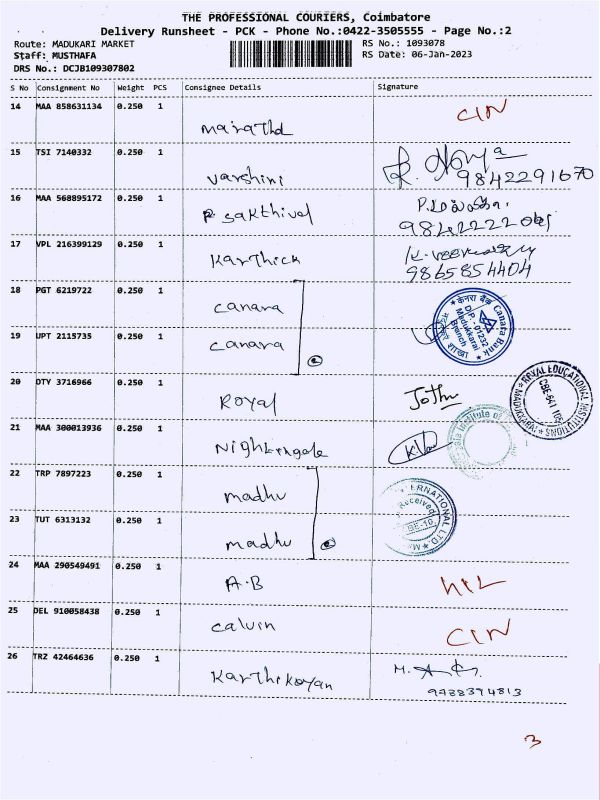 THE PROFESSIONAL COURIERS, Coimbatore
Delivery Runsheet - PCK - Phone No.:0422-3505555 - Page No.:2
Route: MADUKARI MARKET
Staff: MUSTHAFA
DRS No.: DCJB109307802
RS No.: 1093078
RS Date: 06-Jan-2023
S No Consignment No Weight PCS Consignee Details Signature
14 MAA 858631134 0.250 1
CIN
15 TSI 7140332 0.250 1
Varshini
9842291670
16 MAA 568895172 0.250 1
Sakthivel
17 VPL 216399129 0.250 1
Karthick
9865854404
18 PGT 6219722 0.250 1
Canara
केनरा बैंक Canara Bank
D.P.-01232
Madukkarai
Branch
19 UPT 2115735 0.250 1
Canara
2
20 DTY 3716966 0.250 1
Royal
Jothi
ROYAL EDUCATIONAL INSTITUTIONS
CBE-641 105
21 MAA 300013936 0.250 1
Nightingale
Institute of
22 TRP 7897223 0.250 1
madhu
ERNATIONAL LTD.
Received
23 TUT 6313132 0.250 1
madhu
2
24 MAA 290549491 0.250 1
A.B
25 DEL 910058438 0.250 1
Calvin
CIN
26 TRZ 42464636 0.250 1
Karthikeyan
3